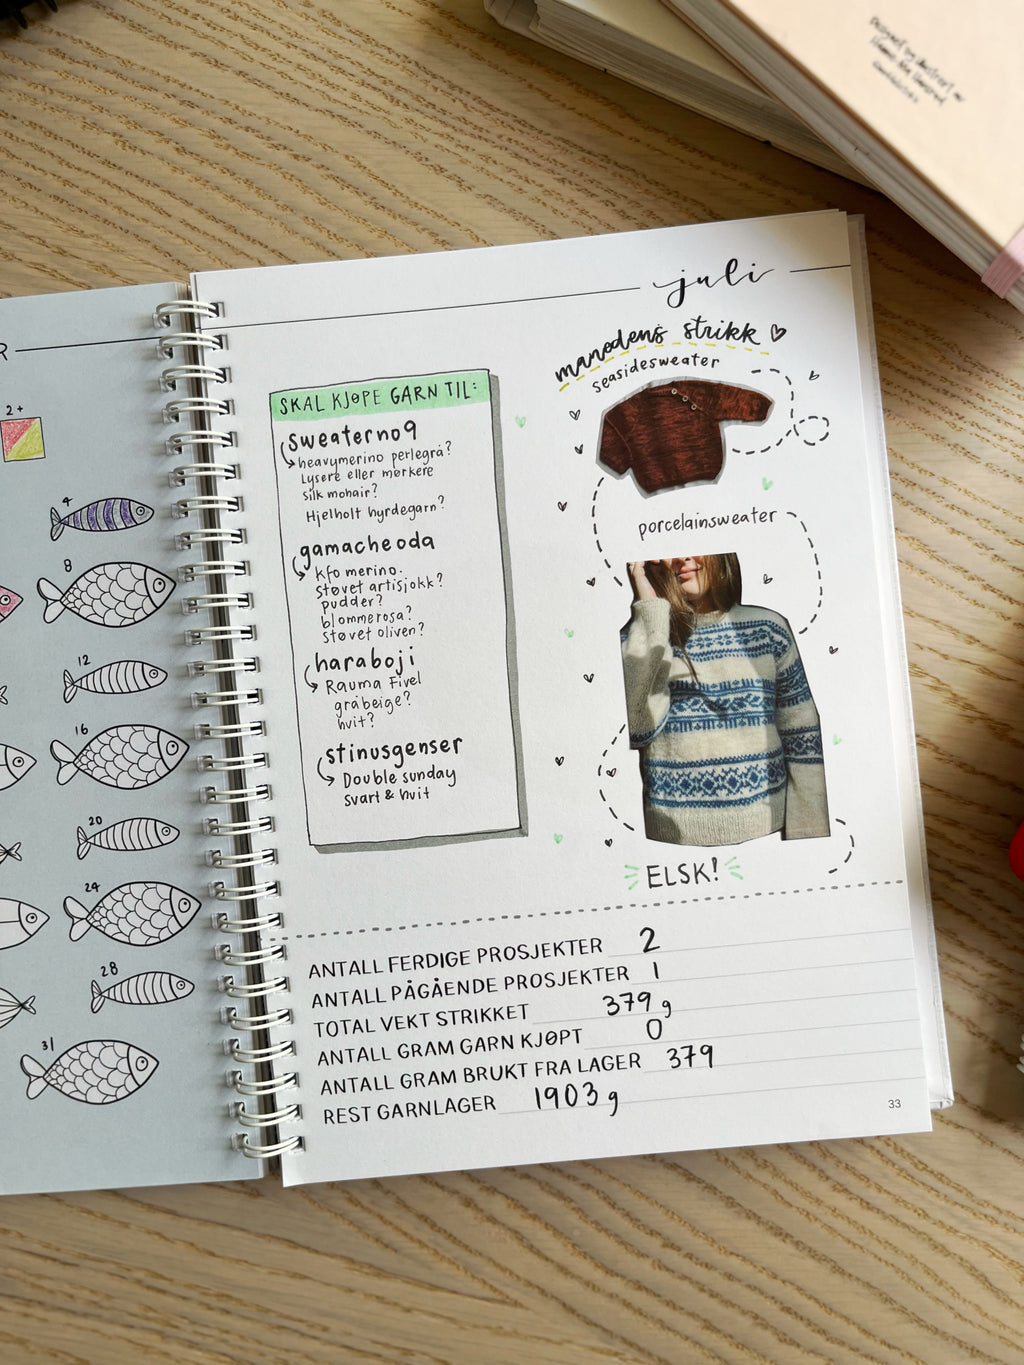 R
2+
4
8
12
16
20
24
28
31
juli
månedens strikk
seasidesweater
SKAL KJØPE GARN TIL:
sweater no 9
heavymerino perlegrå?
Lysere eller mørkere
silk mohair?
Hjelholt hyrdegarn?
gamacheoda
kfo merino.
støvet artisjokk?
pudder?
blommerosa?
støvet oliven?
haraboji
Rauma Fivel
gråbeige?
hvit?
stinusgenser
Double sunday
svart & hvit
porcelainsweater
ELSK!
ANTALL FERDIGE PROSJEKTER 2
ANTALL PÅGÅENDE PROSJEKTER 1
TOTAL VEKT STRIKKET 379 g
ANTALL GRAM GARN KJØPT 0
ANTALL GRAM BRUKT FRA LAGER 379
REST GARNLAGER 1903 g
33